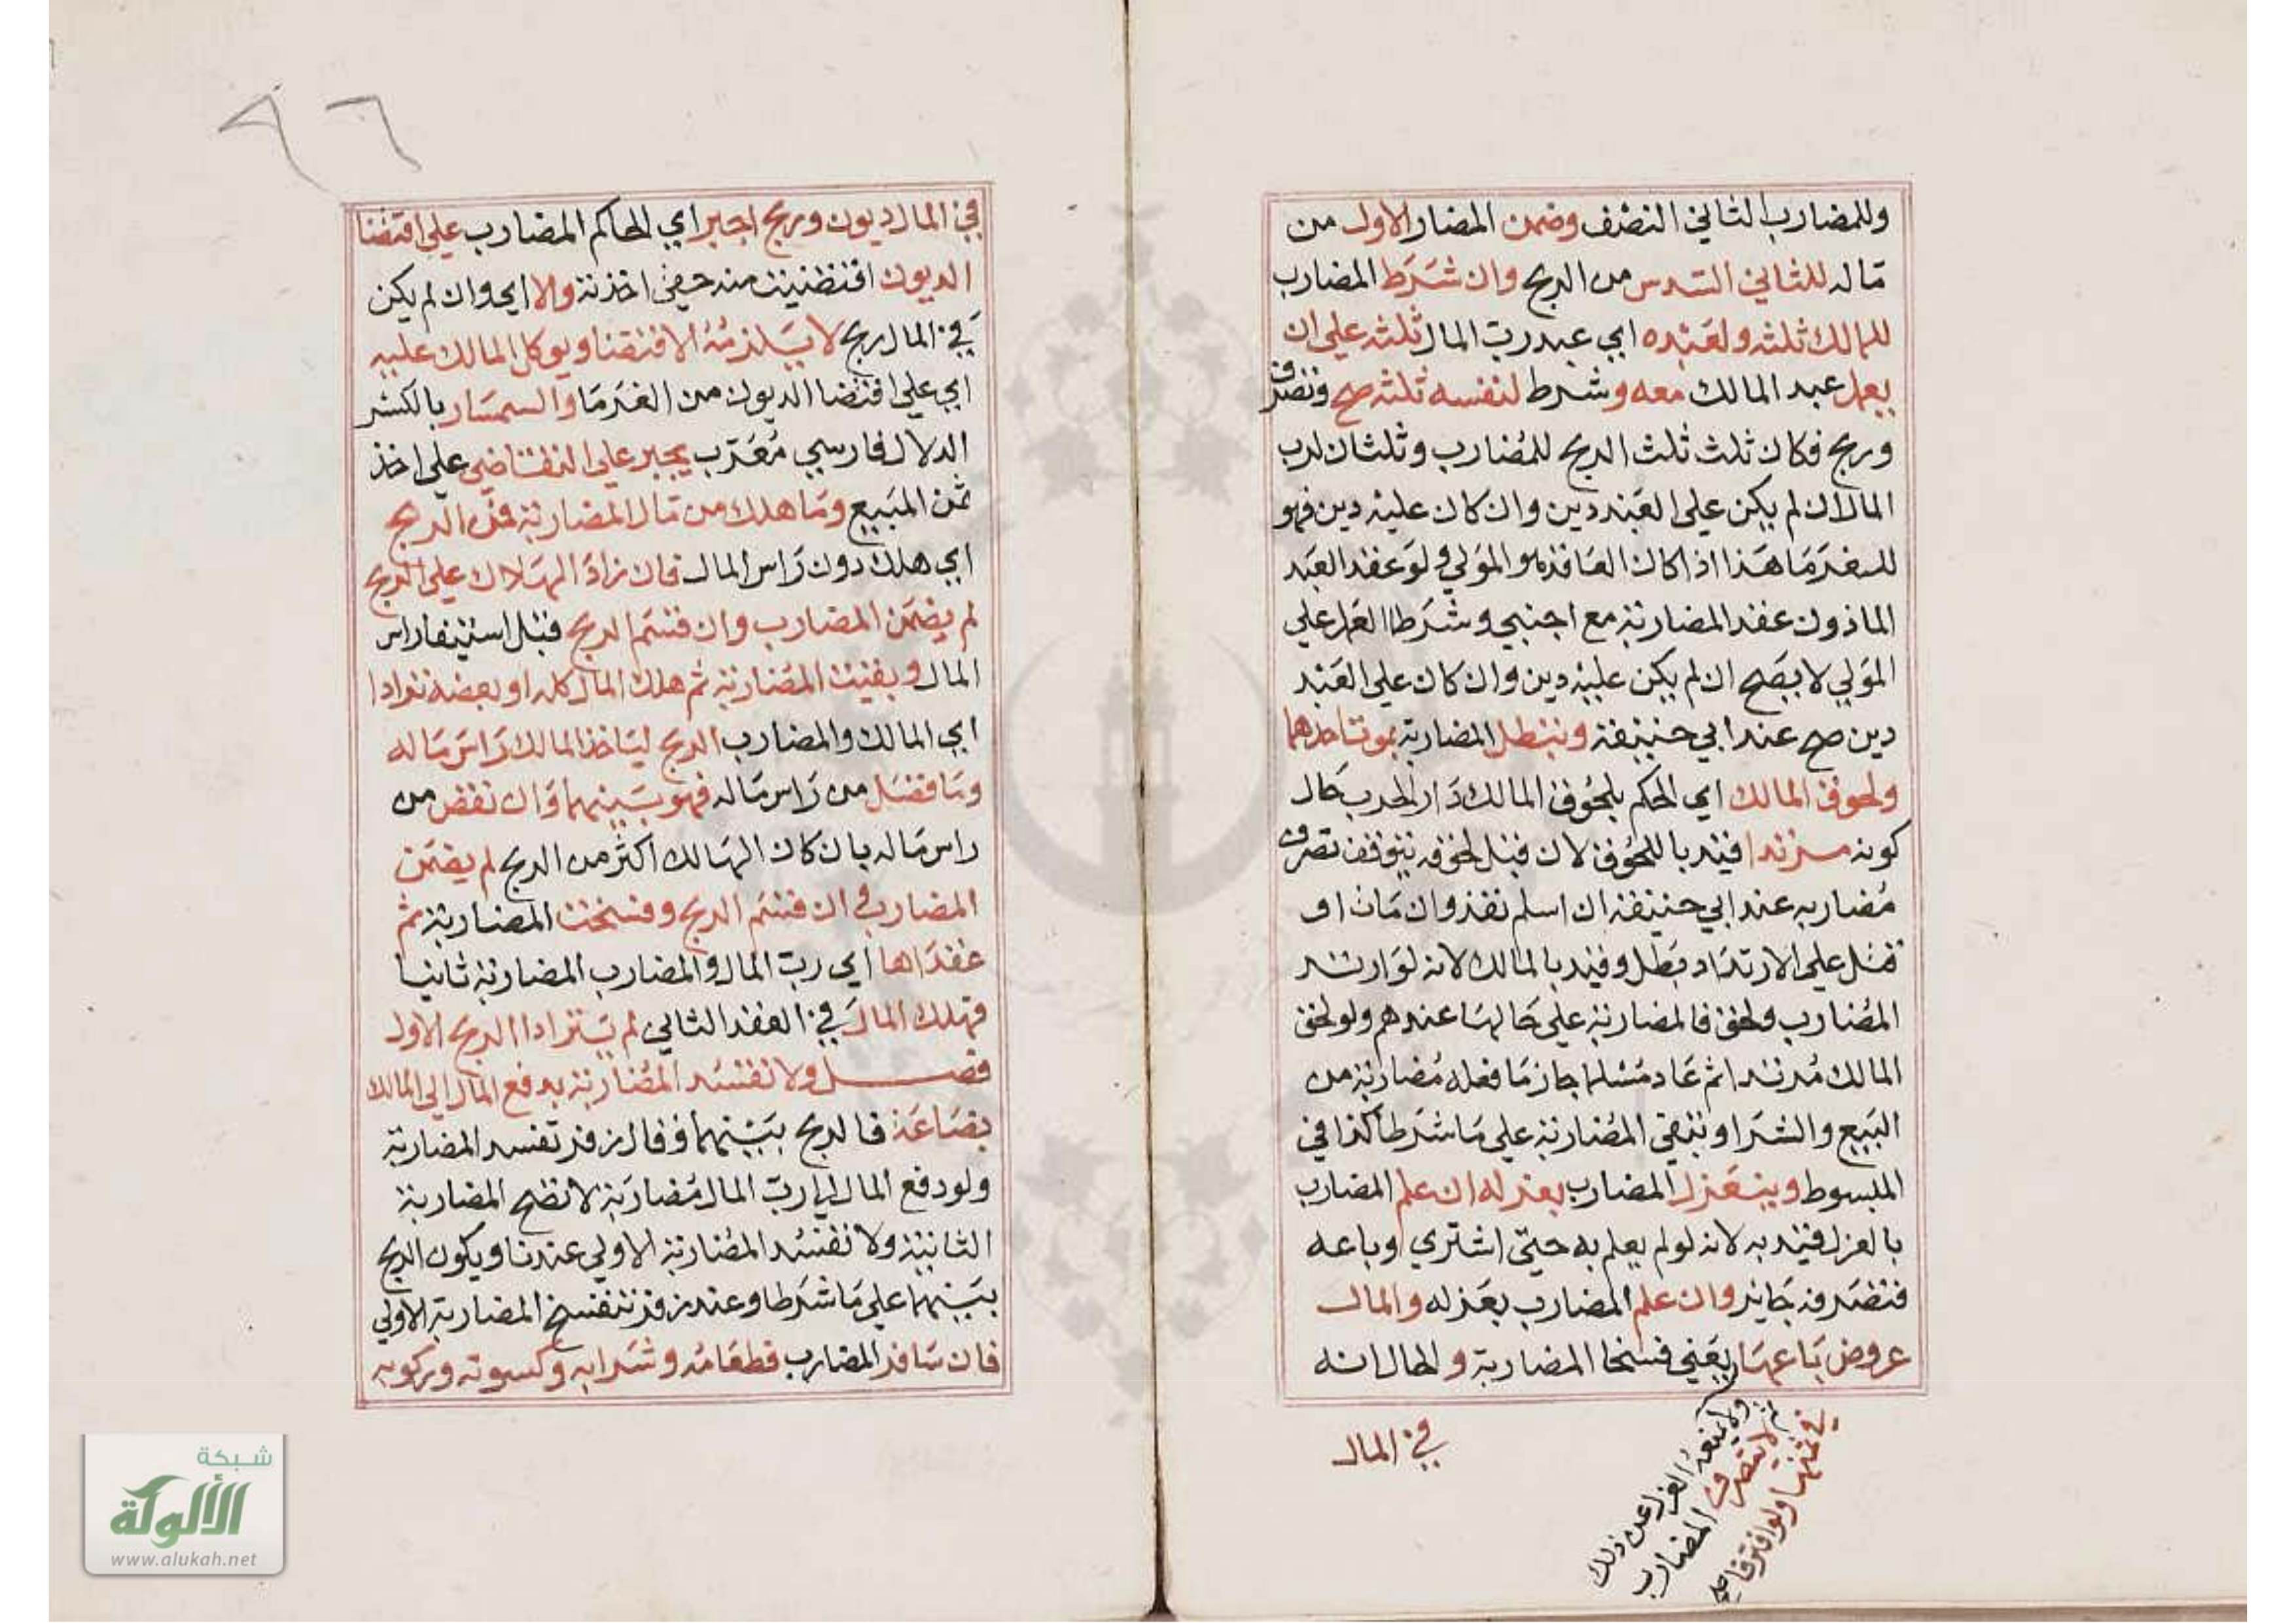 وللمضارب الثاني النصف وضمن المضار الاول من
ماله للثاني السدس من الربح وان شرط المضارب
للمالك ثلثه ولعبده اي عبد رب المال ثلثه على ان
يعمل عبد المالك معه وشرط لنفسه ثلثه صح وتصرف
وربح فكان ثلث ثلث الربح للمضارب وثلثان لرب
المال ان لم يكن على العبد دين وان كان عليه دين فهو
للغرما هذا اذا كان العاقد هو المولي ولو عقد العبد
الماذون عقد المضاربة مع اجنبي وشرطا العمل علي
المولي لا يصح ان لم يكن عليه دين وان كان على العبد
دين صح عند ابي حنيفة وتبطل المضاربة بموت احدهما
ولحوق المالك اي الحكم بلحوق المالك دار الحرب حال
كونه مرتدا قيد باللحوق لان قبل لحوقه يتوقف تصرف
مضاربه عند ابي حنيفة ان اسلم نفذ وان مات او
قتل على الارتداد بطل وقيد بالمالك لانه لو ارتد
المضارب ولحق فالمضاربة علي حالها عندهم ولو لحق
المالك مرتدا ثم عاد مسلما جاز ما فعله مضاربة من
البيع والشرا وتبقي المضاربة علي ما شرطا كذا في
المبسوط وينعزل المضارب بعزله ان علم المضارب
بالعزل قيد به لانه لو لم يعلم به حتي اشتري وباعه
فتصرفه جائز وان علم المضارب بعزله والمال
عروض باعها يعني فسخا المضاربة والحال انه
ولا يمنعه العزل عن ذلك
ثم لا يتصرف المضارب
في ثمنها ولو افترقا صح
في المال
٩٦
في المال ديون وربح اجبر اي الحاكم المضارب على اقتضا
الديون اقتضيت منه حقي اخذته والا اي وان لم يكن
في المال ربح لا يلزمه الاقتضا ويوكل المالك عليه
اي علي اقتضا الديون من الغرما والسمسار بالكسر
الدلال فارسي معرب يجبر على التقاضي علي اخذ
ثمن المبيع وما هلك من مال المضاربة فمن الربح
اي هلك دون راس المال فان زاد الهلاك على الربح
لم يضمن المضارب وان قسم الربح قبل استيفا راس
المال وبقيت المضاربة ثم هلك المال كله او بعضه ترادا
اي المالك والمضارب الربح لياخذ المالك راس ماله
وما فضل من راس ماله فهو بينهما وان نقص من
راس ماله بان كان الهالك اكثر من الربح لم يضمن
المضارب وان قسم الربح وفسخت المضاربة ثم
عقداها اي رب المال والمضارب المضاربة ثانيا
فهلك المال في العقد الثاني لم يترادا الربح الاول
فصل ولا تفسد المضاربة بدفع المال الى المالك
بضاعة فالربح بينهما وقال زفر تفسد المضاربة
ولو دفع المال الى رب المال مضاربة لا تصح المضاربة
الثانية ولا تفسد المضاربة الاولي عندنا ويكون الربح
بينهما علي ما شرطا وعند زفر تنفسخ المضاربة الاولي
فان سافر المضارب فطعامه وشرابه وكسوته وركوبه
شبكة
الألوكة
www.alukah.net